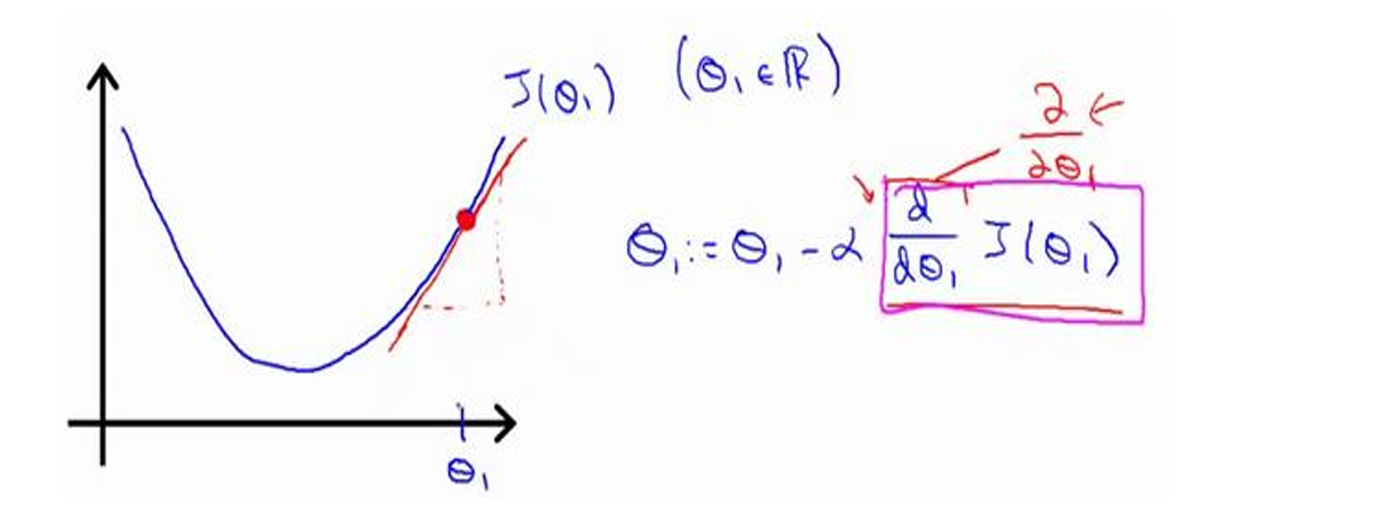 J(θ₁) (θ₁ ∈ ℝ)
∂/∂θ₁ ←
θ₁ := θ₁ - α d/dθ₁ J(θ₁)
θ₁